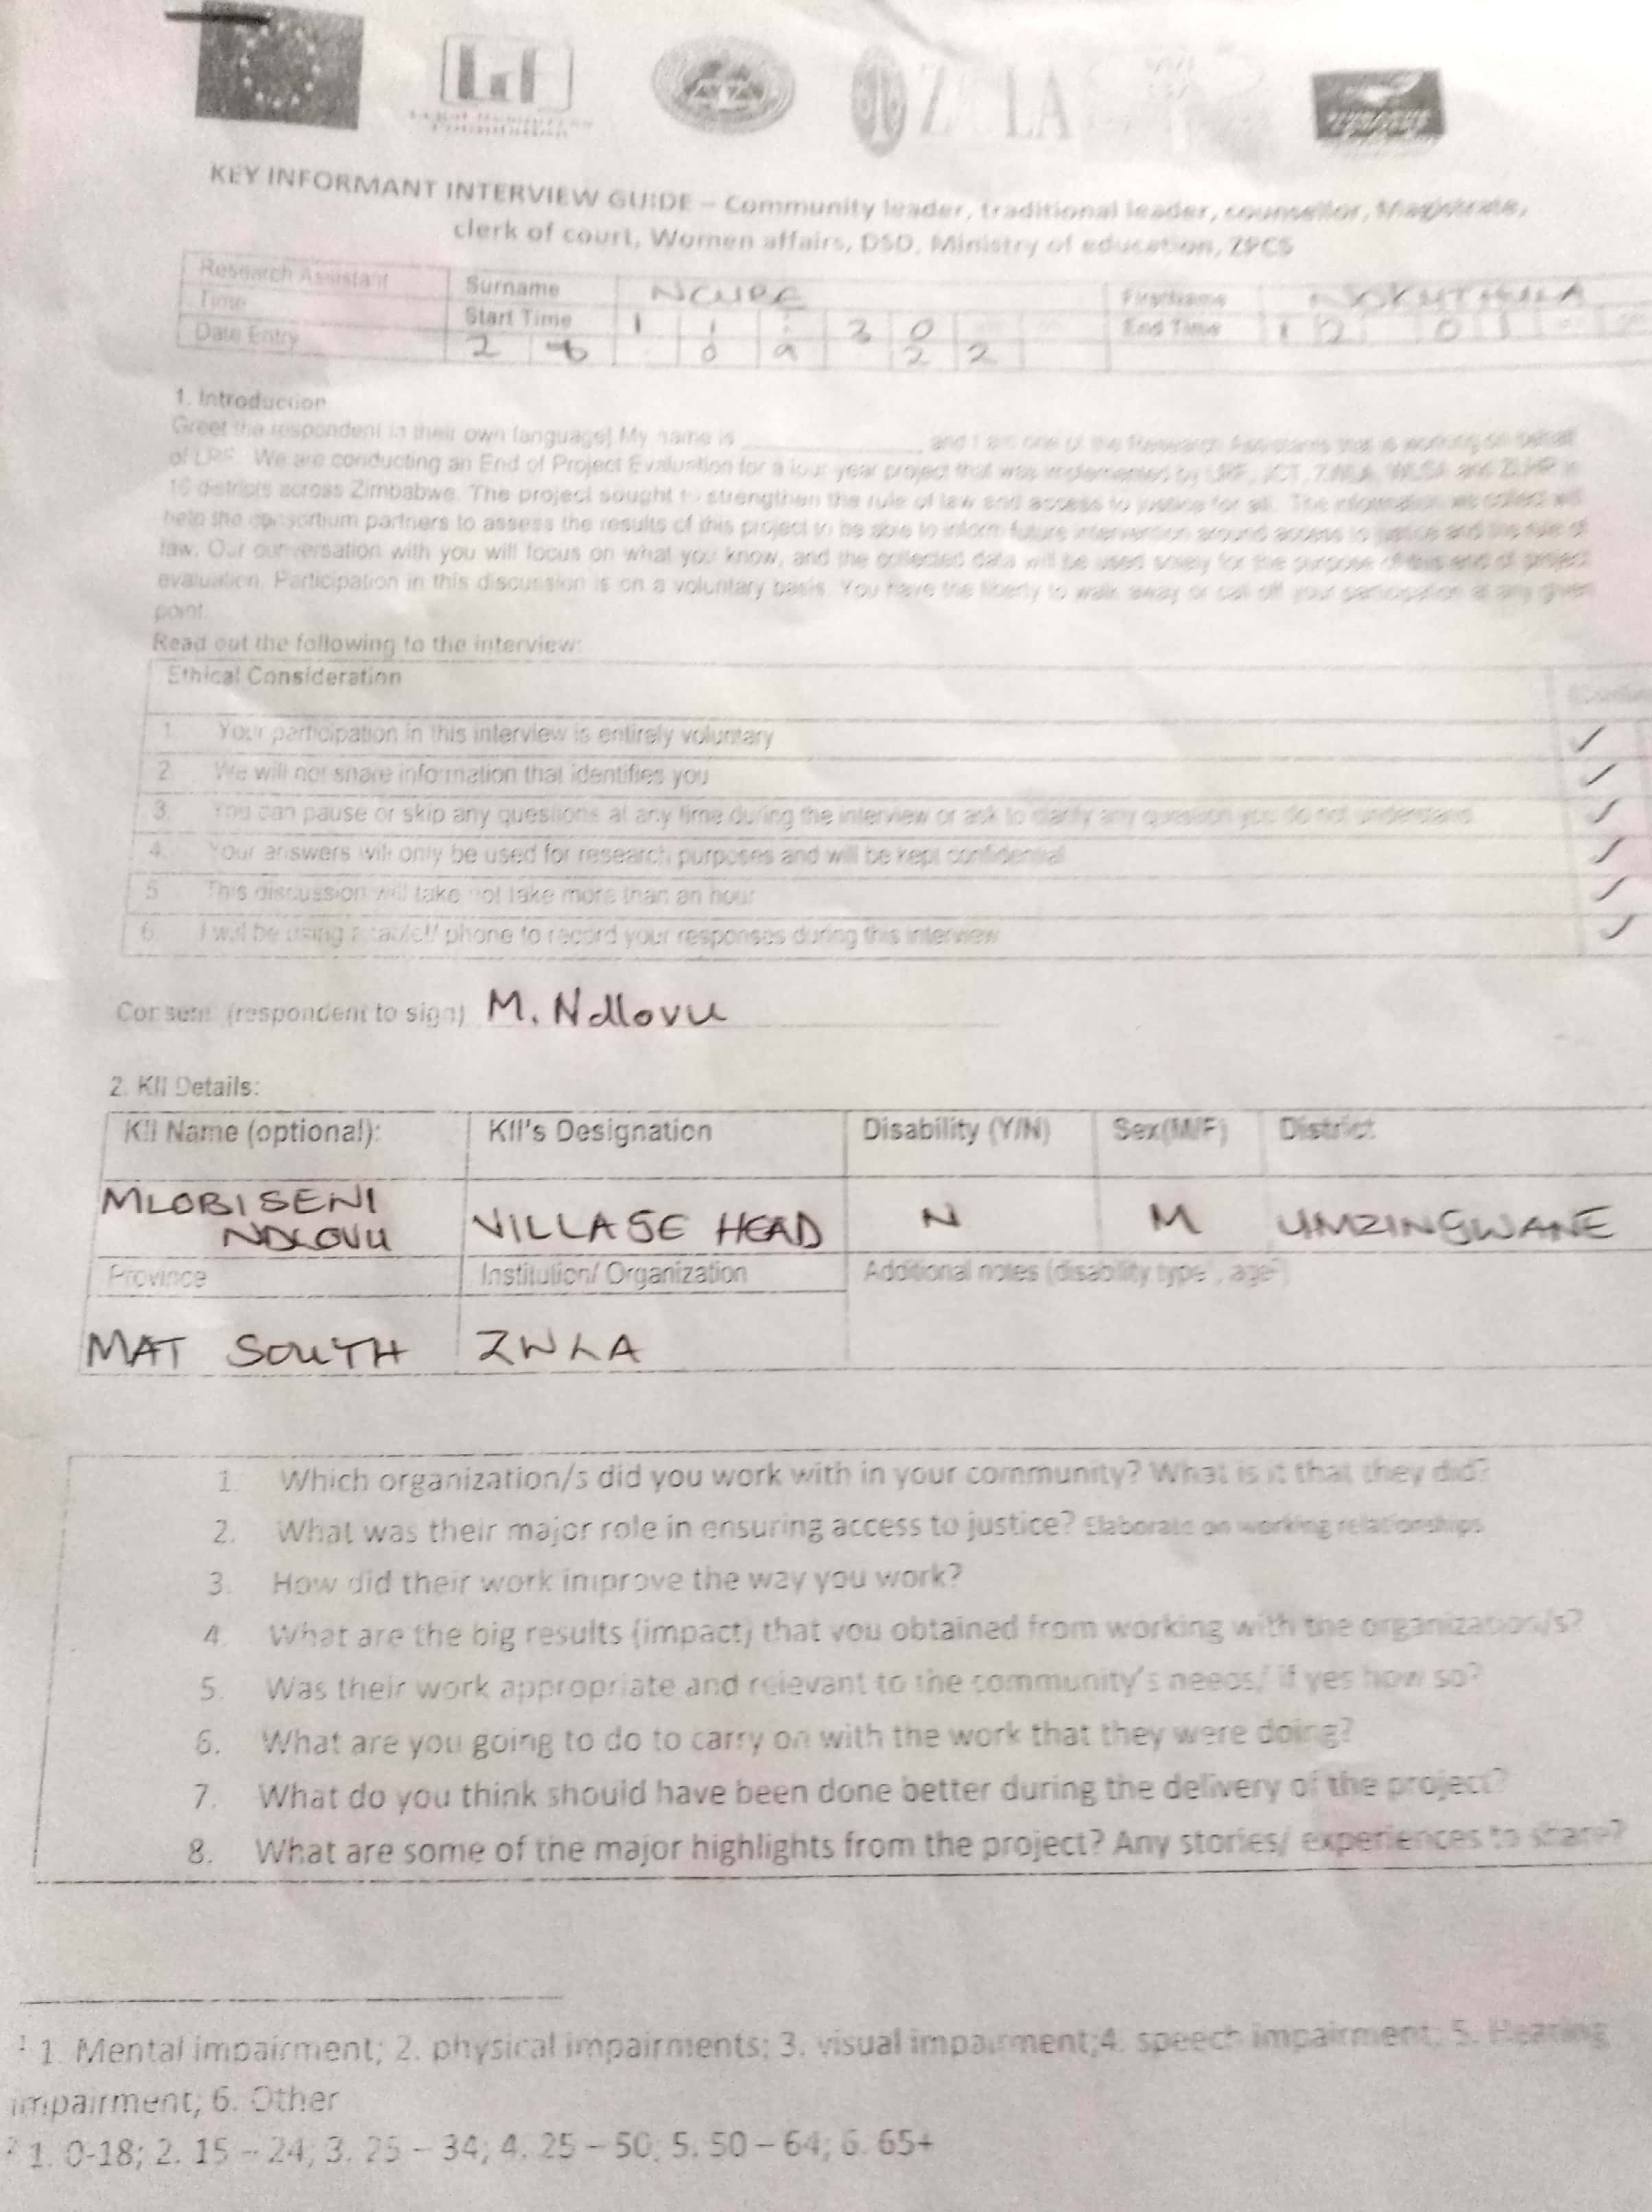 Legal Resources
Foundation
KEY INFORMANT INTERVIEW GUIDE – Community leader, traditional leader, counsellor, Magistrate,
clerk of court, Women affairs, DSD, Ministry of education, ZPCS
Research Assistant Surname NCUBE Firstname NOKUTHULA
Time Start Time 11:30 End Time 12 01
Date Entry 28 09 22
1. Introduction
Greet the respondent in their own language] My name is ____________ and I am one of the Research Assistants that is working on behalf
of LRF. We are conducting an End of Project Evaluation for a four year project that was implemented by LRF, JCT, ZWLA, WLSA and ZLHR in
16 districts across Zimbabwe. The project sought to strengthen the rule of law and access to justice for all. The information we collect will
help the consortium partners to assess the results of this project to be able to inform future intervention around access to justice and the rule of
law. Our conversation with you will focus on what you know, and the collected data will be used solely for the purpose of this end of project
evaluation. Participation in this discussion is on a voluntary basis. You have the liberty to walk away or call off your participation at any given
point.
Read out the following to the interview:
Ethical Consideration
1. Your participation in this interview is entirely voluntary ✓
2. We will not share information that identifies you ✓
3. You can pause or skip any questions at any time during the interview or ask to clarify any question you do not understand ✓
4. Your answers will only be used for research purposes and will be kept confidential ✓
5 This discussion will take not take more than an hour ✓
6. I will be using a tablet/ phone to record your responses during this interview ✓
Consent (respondent to sign) M. Ndlovu
2. KII Details:
KII Name (optional): KII's Designation Disability (Y/N) Sex(M/F) District
MLOBISENI
NDLOVU VILLAGE HEAD N M UMZINGWANE
Province Institution/ Organization Additional notes (disability type¹, age²)
MAT SOUTH ZWLA
1. Which organization/s did you work with in your community? What is it that they did?
2. What was their major role in ensuring access to justice? Elaborate on working relationships
3. How did their work improve the way you work?
4. What are the big results (impact) that you obtained from working with the organization/s?
5. Was their work appropriate and relevant to the community's needs/ if yes how so?
6. What are you going to do to carry on with the work that they were doing?
7. What do you think should have been done better during the delivery of the project?
8. What are some of the major highlights from the project? Any stories/ experiences to share?
¹ 1. Mental impairment; 2. physical impairments; 3. visual impairment;4. speech impairment; 5. Hearing
impairment; 6. Other
² 1. 0-18; 2. 15 – 24; 3. 25 – 34; 4. 25 – 50; 5. 50 – 64; 6. 65+